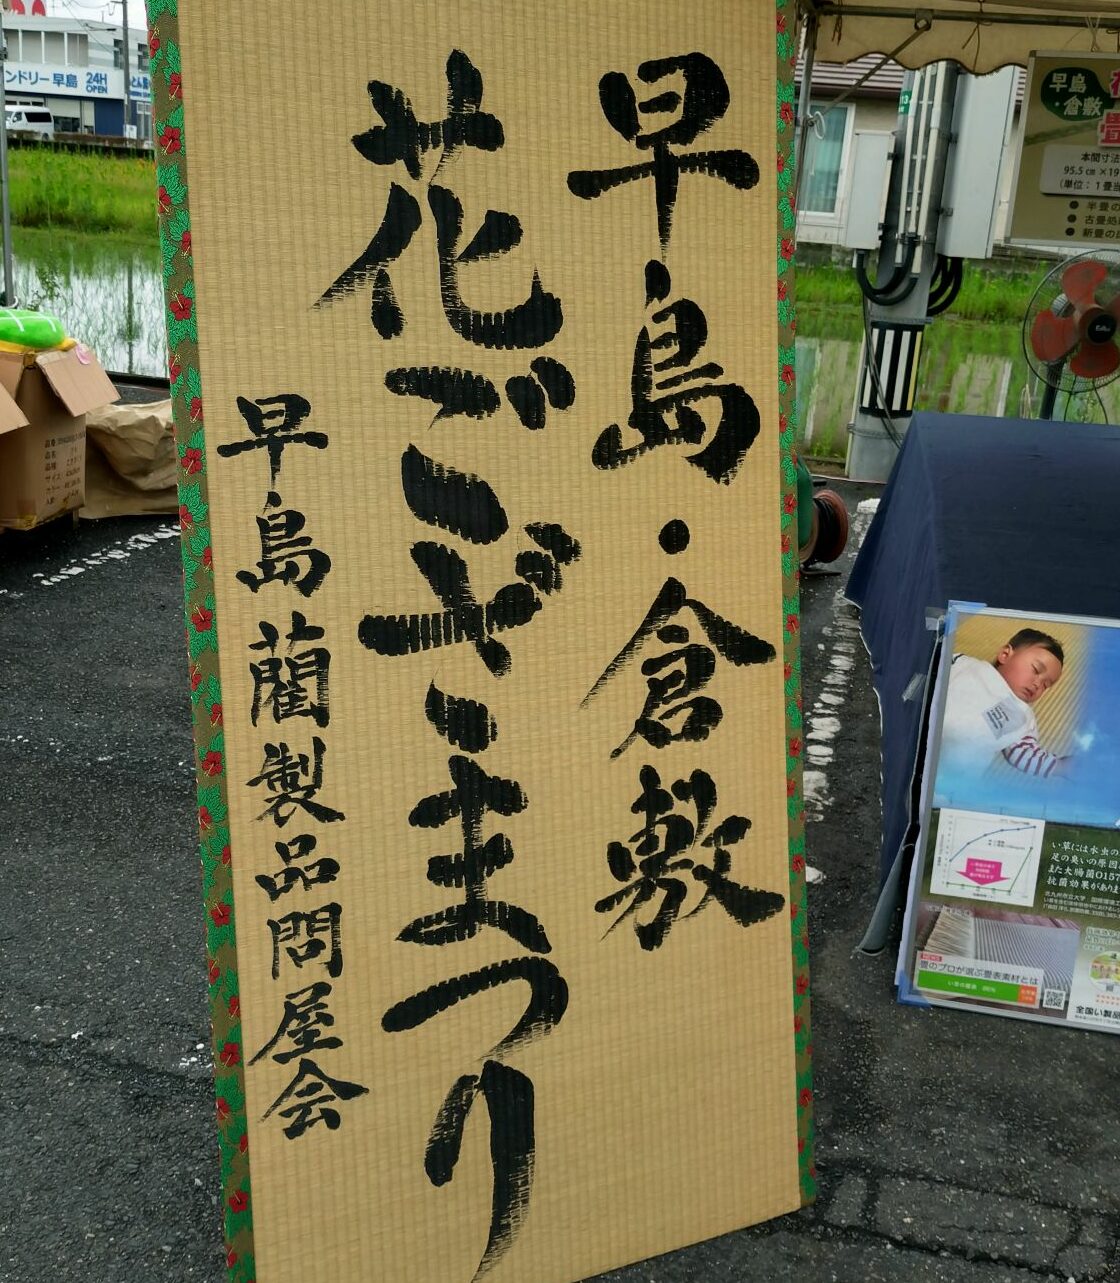 早島・倉敷
花ござまつり
早島藺製品問屋会
ンドリー早島 24H
OPEN
早島
・倉敷
本間寸法
95.5㎝×19
(単位：1畳
● 半畳の
● 古畳処
● 新畳の
い草には水虫の
足の臭いの原因
また大腸菌O157
抗菌効果があ
NEWS
畳のプロが選ぶ畳表素材とは
全国い製品